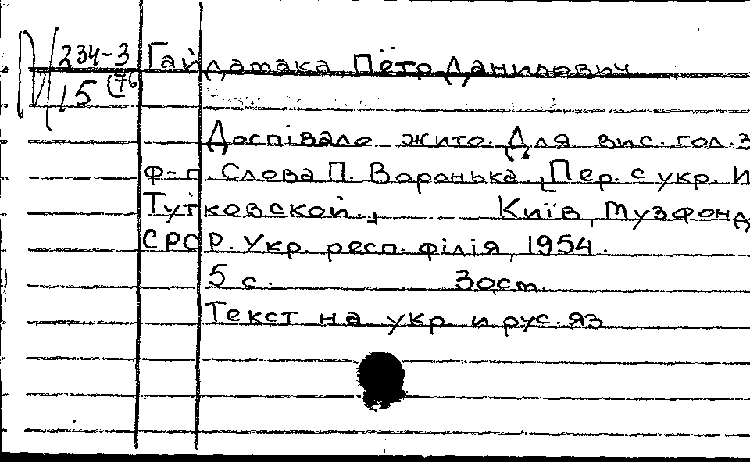 234-3
15
Гайдамака, Пётр Данилович
Доспівало жито. Для вис. гол. з
ф-п. Слова П. Воронька. [Пер. с укр. И
Тутковской.] Київ, Музфонд
СРСР. Укр. респ. філія, 1954.
5 с. 30см.
Текст на укр и рус. яз